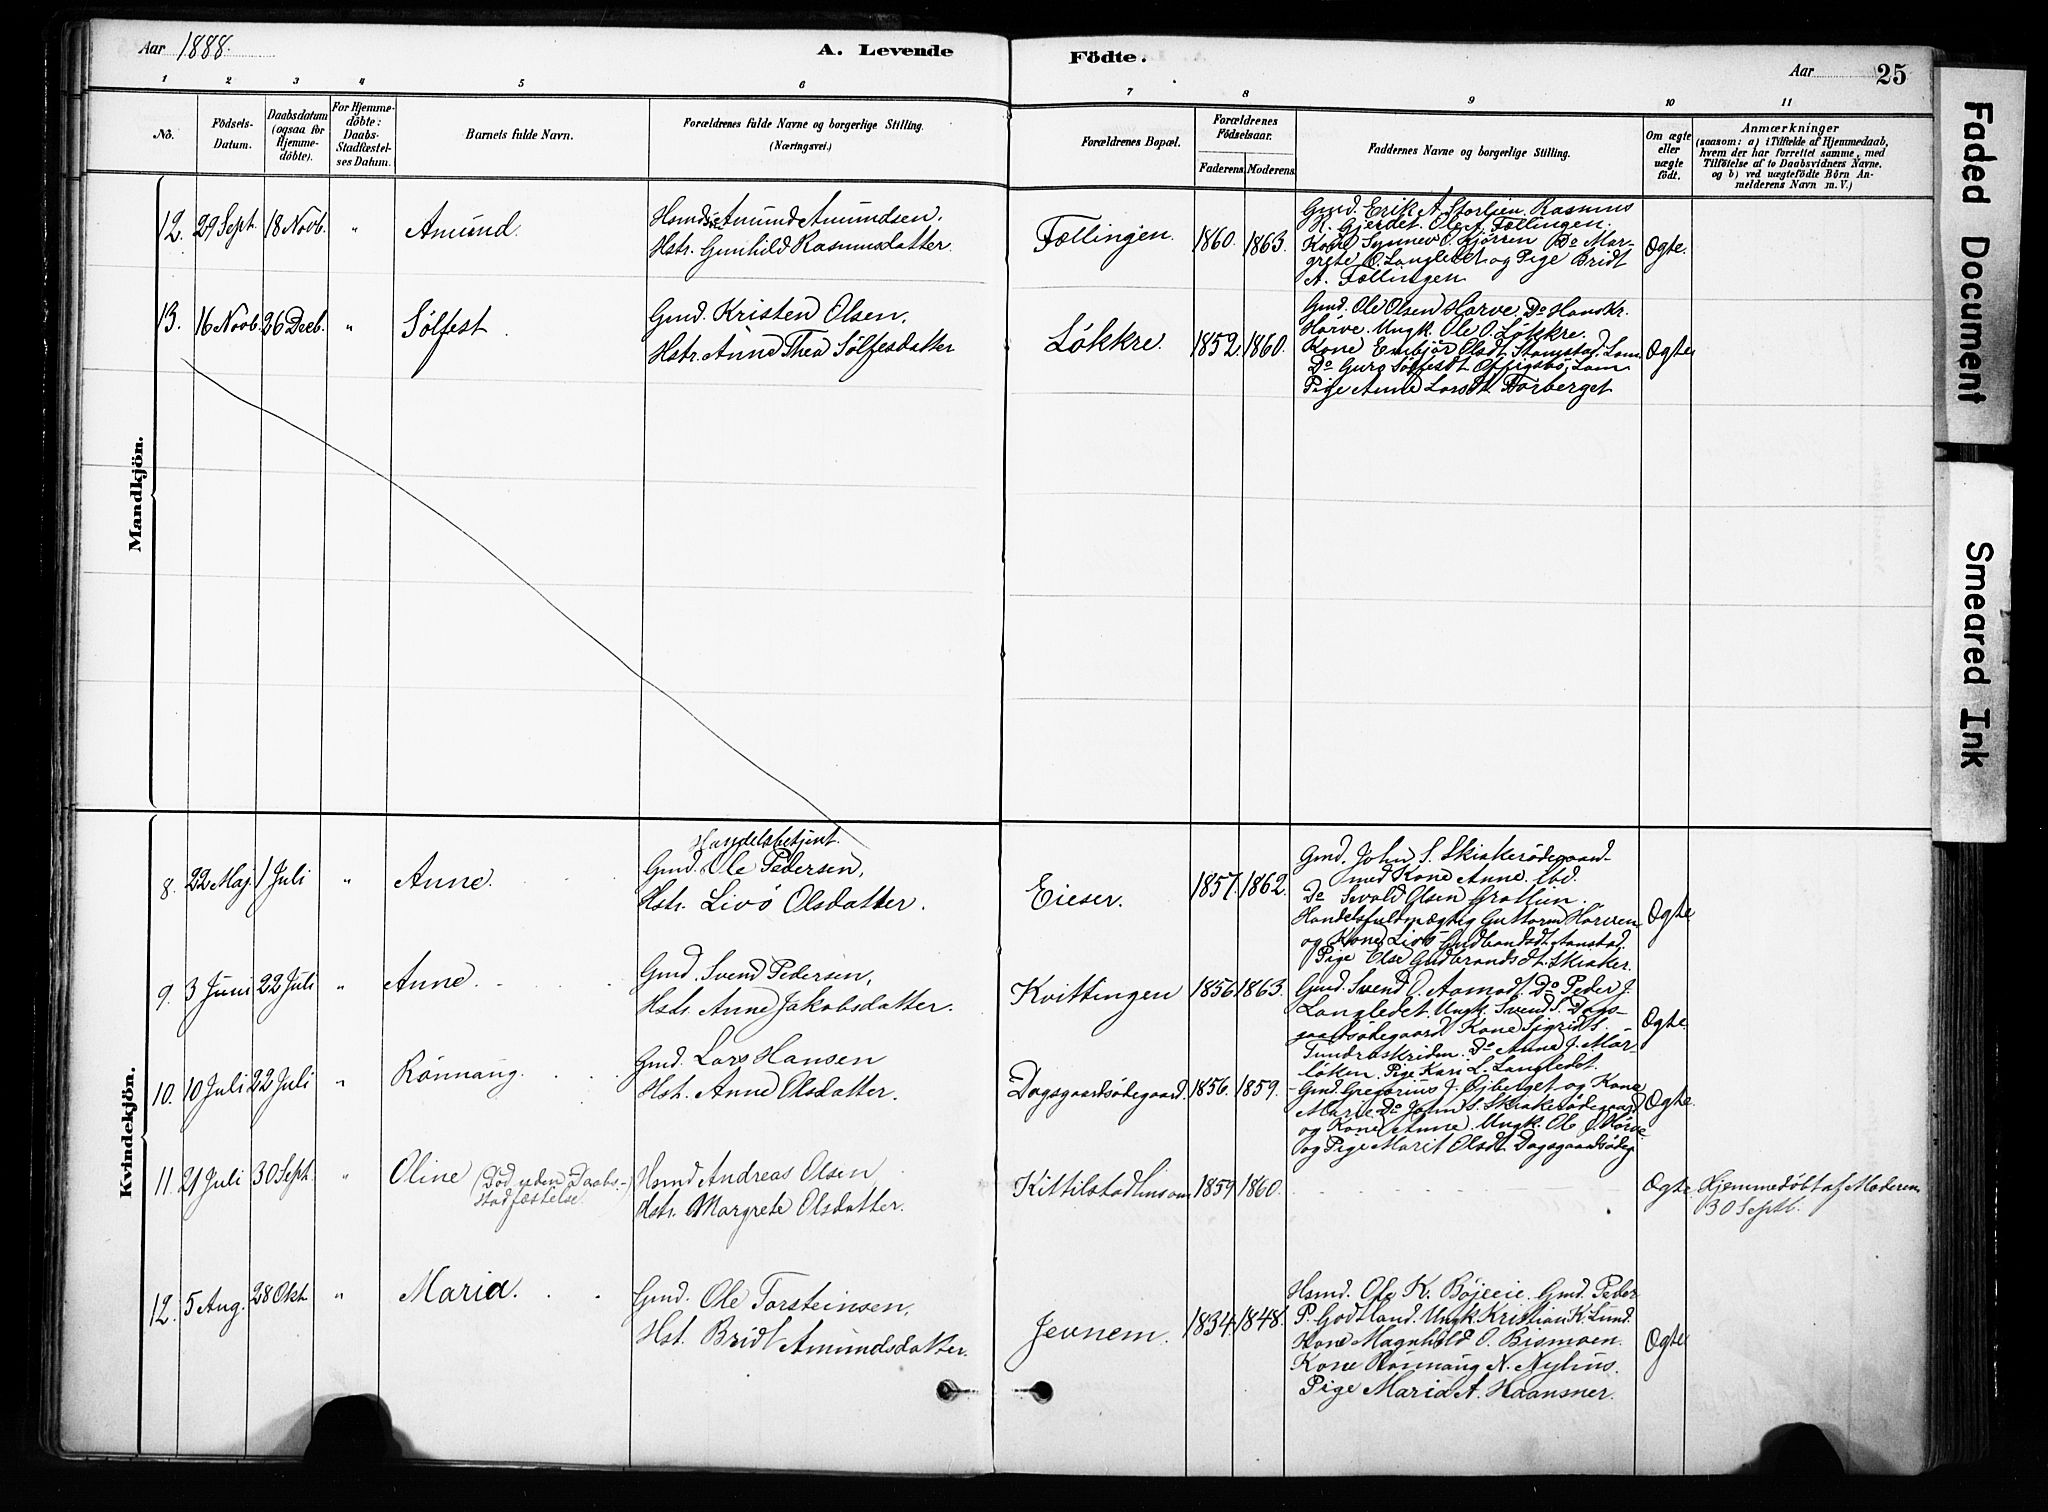 Aar 1888.
A. Levende
Födte.
Aar
25
1 2 3 4 5 6 7 8 9 10 11
No.
Födsels-
Datum.
Daabsdatum
(ogsaa for
Hjemme-
döbte).
For Hjemme-
döbte:
Daabs-
Stadfæstel-
ses Datum.
Barnets fulde Navn.
Forældrenes fulde Navne og borgerlige Stilling.
(Næringsvei.)
Forældrenes Bopæl.
Forældrenes
Födselsaar.
Faderens. Moderens.
Faddernes Navne og borgerlige Stilling.
Om ægte
eller
uægte
födt.
Anmærkninger
(saasom: a) i Tilfælde af Hjemmedaab,
hvem der har forrettet samme, med
Tilföielse af to Daabsvidners Navne.
og b) ved uægtefödte Börn An-
melderens Navn m. V.)
Mandkjön.
12. 29 Sept. 18 Novb. " Amund.
Amund Amundsen.
Hstr. Gunhild Rasmusdatter.
Føllingen. 1860. 1863.
Gmd. Erik A. Storlien. Rasmus
R. Gjerdet. Ole A. Føllingen.
Kone Synnev O. Kjörren Do Mar-
grete O. Langledet og Pige Bridt
A. Føllingen
Ægte.
13. 16 Novb. 26 Decb. " Sölfest.
Gmd. Kristen Olsen.
Hstr. Anne Thea Sölfesdatter
Løkkre. 1852. 1860.
Gmd. Ole Olsen Horve Do Hans Kr.
Horve. Ungk. Ole O. Løkkre.
Kone Embjör Olsdt. Stamstad, Lom
Do Guro Sølfesdt. Lom
Pige Anne Larsdt. Forberget
Ægte
Kvindekjön.
8. 22 Maj. 1 Juli " Anne.
Handelsbetjent.
Gmd. Ole Pedersen,
Hstr. Livö Olsdatter.
Eieser. 1857. 1862.
Gmd. John S. Skiakerödegaard
med Kone Anne. ibd.
Do Sevald Olsen Grøttien.
Handelsfuldmægtig Guttorm Horven
og Kone Livö Gudbrandsdt. Aanstad.
Pige Else Gudbrandsdt. Skiaker.
Ægte
9. 3 Juni 22 Juli " Anne.
Gmd. Svend Pedersen,
Hstr. Anne Jakobsdatter.
Kvittingen 1856. 1863.
Gmd. Svend O. Aamodt. Do Peder J.
Langledet. Ungk. Svend S. Dags-
gaardsödegaard Kone Sigrid S.
Tundraskriden. Do Anne J. Mar-
løken. Pige Kari L. Langledet.
Ægte.
10. 10 Juli 22 Juli " Rönnaug.
Gmd. Lars Hansen
Hst. Anne Olsdatter.
Dagsgaardsödegaard. 1856. 1859.
Gmd. Gregorius J. Øjberget og Kone
Marie Do John S. Skiakerödegaard
og Kone Anne. Ungk. Ole O. Horve
og Pige Marit Olsdt. Dagsgaardsödeg
Ægte.
11. 21 Juli 30 Sept. " Oline (Död uden Daabs-
stadfæstelse.)
Hsmd Andreas Olsen
Hstr. Margrete Olsdatter.
Kittilstad 1859 1860.
Ægte
Hjemmedöbt af Moderen
30 Septb.
12. 5 Aug. 28 Okt. " Maria.
Gmd. Ole Torsteinsen,
Hst. Bridt Amundsdatter.
Jevnem. 1834. 1848.
Hsmd. Ole K. Böjeeie. Gmd. Peder
P. Godtland. Ungk. Kristian K. Lund.
Kone Magnhild O. Bismoen.
Kone Rönnaug N. Nyhus.
Pige Maria A. Haansner.
Ægte
Faded Document
Smeared Ink